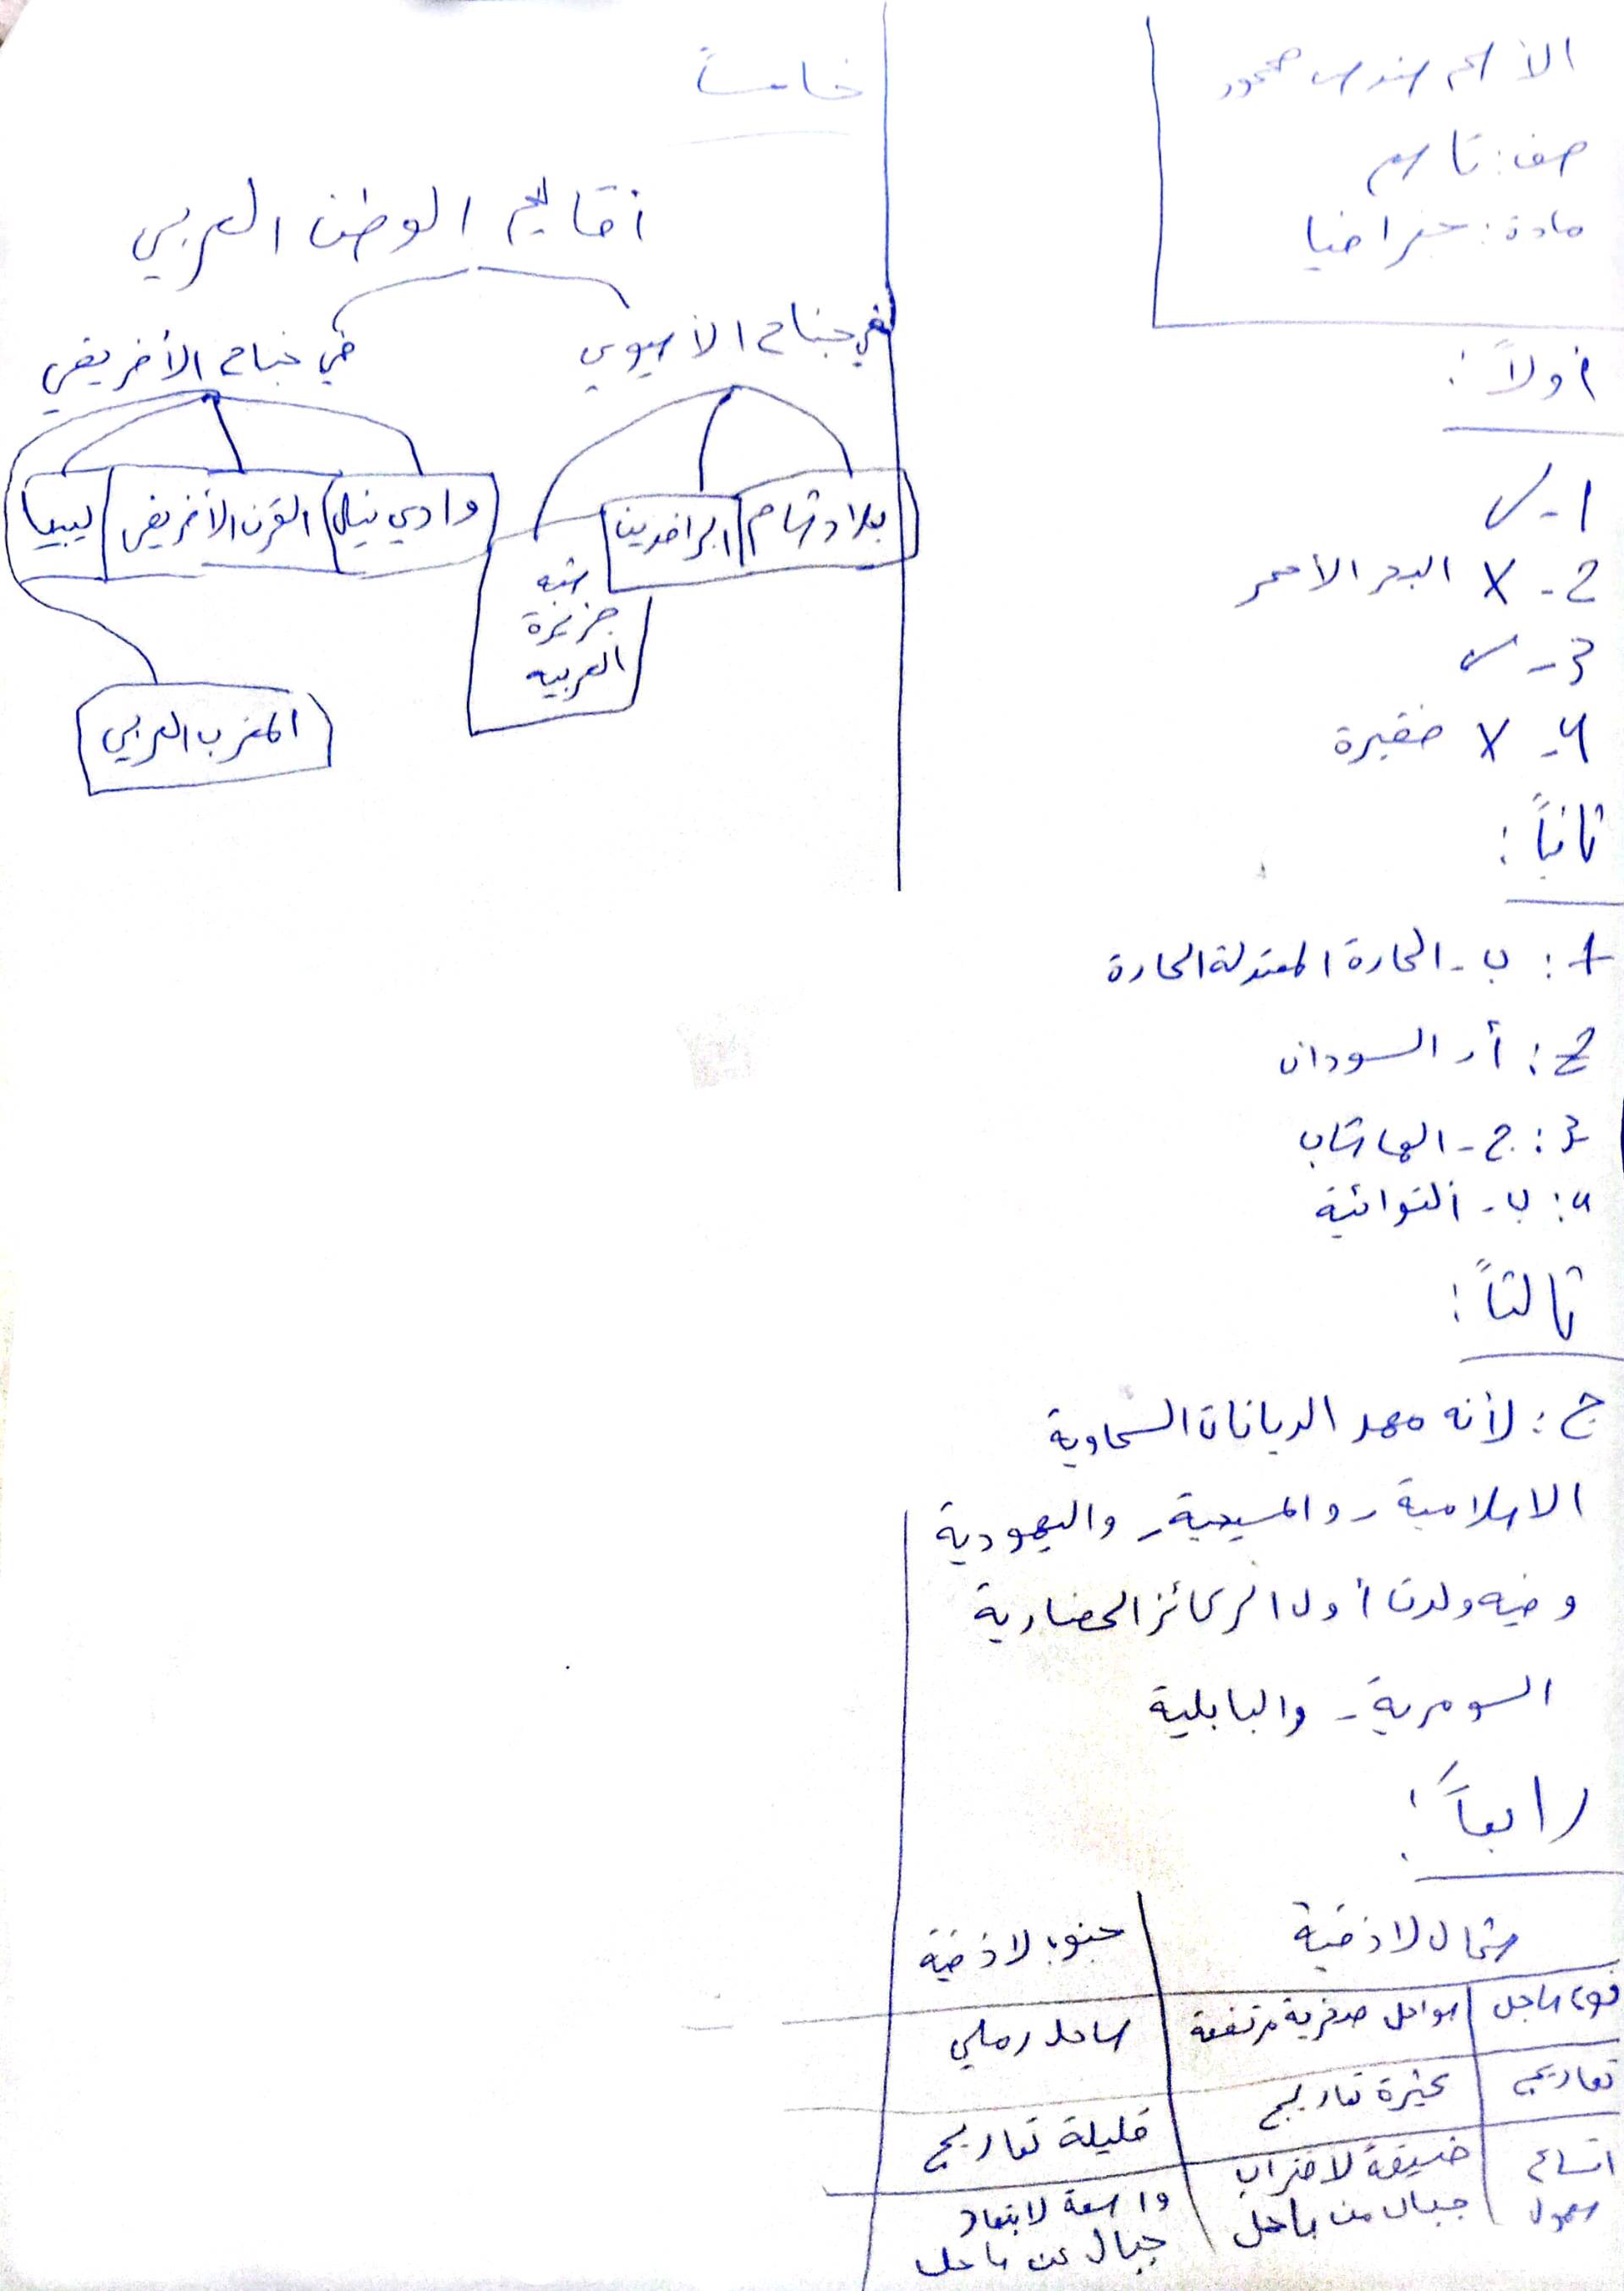 الأسم سندس محمود
صف: تاسع
مادة: جغرافيا
أولاً:
1- ✓
2- X البحر الأحمر
3- ✓
4- X فقيرة
ثانياً:
1: ب- الحارة المعتدلة الحارة
2: أ- السودان
3: ج- الهاشاب
4: ب- التوائية
ثالثاً:
ج: لأنه مهد الديانات السماوية
الاسلامية - والمسيحية - واليهودية
وفيه ولدت أول الركائز الحضارية
السومرية - والبابلية
رابعاً:
شمال لاذقية جنوب لاذقية
نوع ساحل سواحل صخرية مرتفعة ساحل رملي
تعاريج كثيرة تعاريج قليلة تعاريج
اتساع ضيقة لاقتراب واسعة لابتعاد
سهول جبال من ساحل جبال عن ساحل
خامساً
أقاليم الوطن العربي
في جناح الأسيوي في جناح الأفريقي
بلاد شام الرافدين وادي نيل القرن الأفريقي ليبيا
شبه
جزيرة
العربيه
المغرب العربي